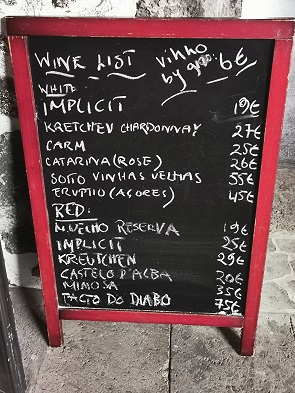 WINE LIST
vinho
by glass 6€
WHITE
IMPLICIT 19€
KRETCHEN CHARDONNAY 27€
CARM 25€
CATARINA (ROSE) 26€
SOITO VINHAS VELHAS 55€
ERUPTIO (AÇORES) 45€
RED:
RESERVA 19€
IMPLICIT 25€
KREUTCHEN 29€
CASTELO D'ALBA 20€
MIMOSA 35€
PACTO DO DIABO 75€